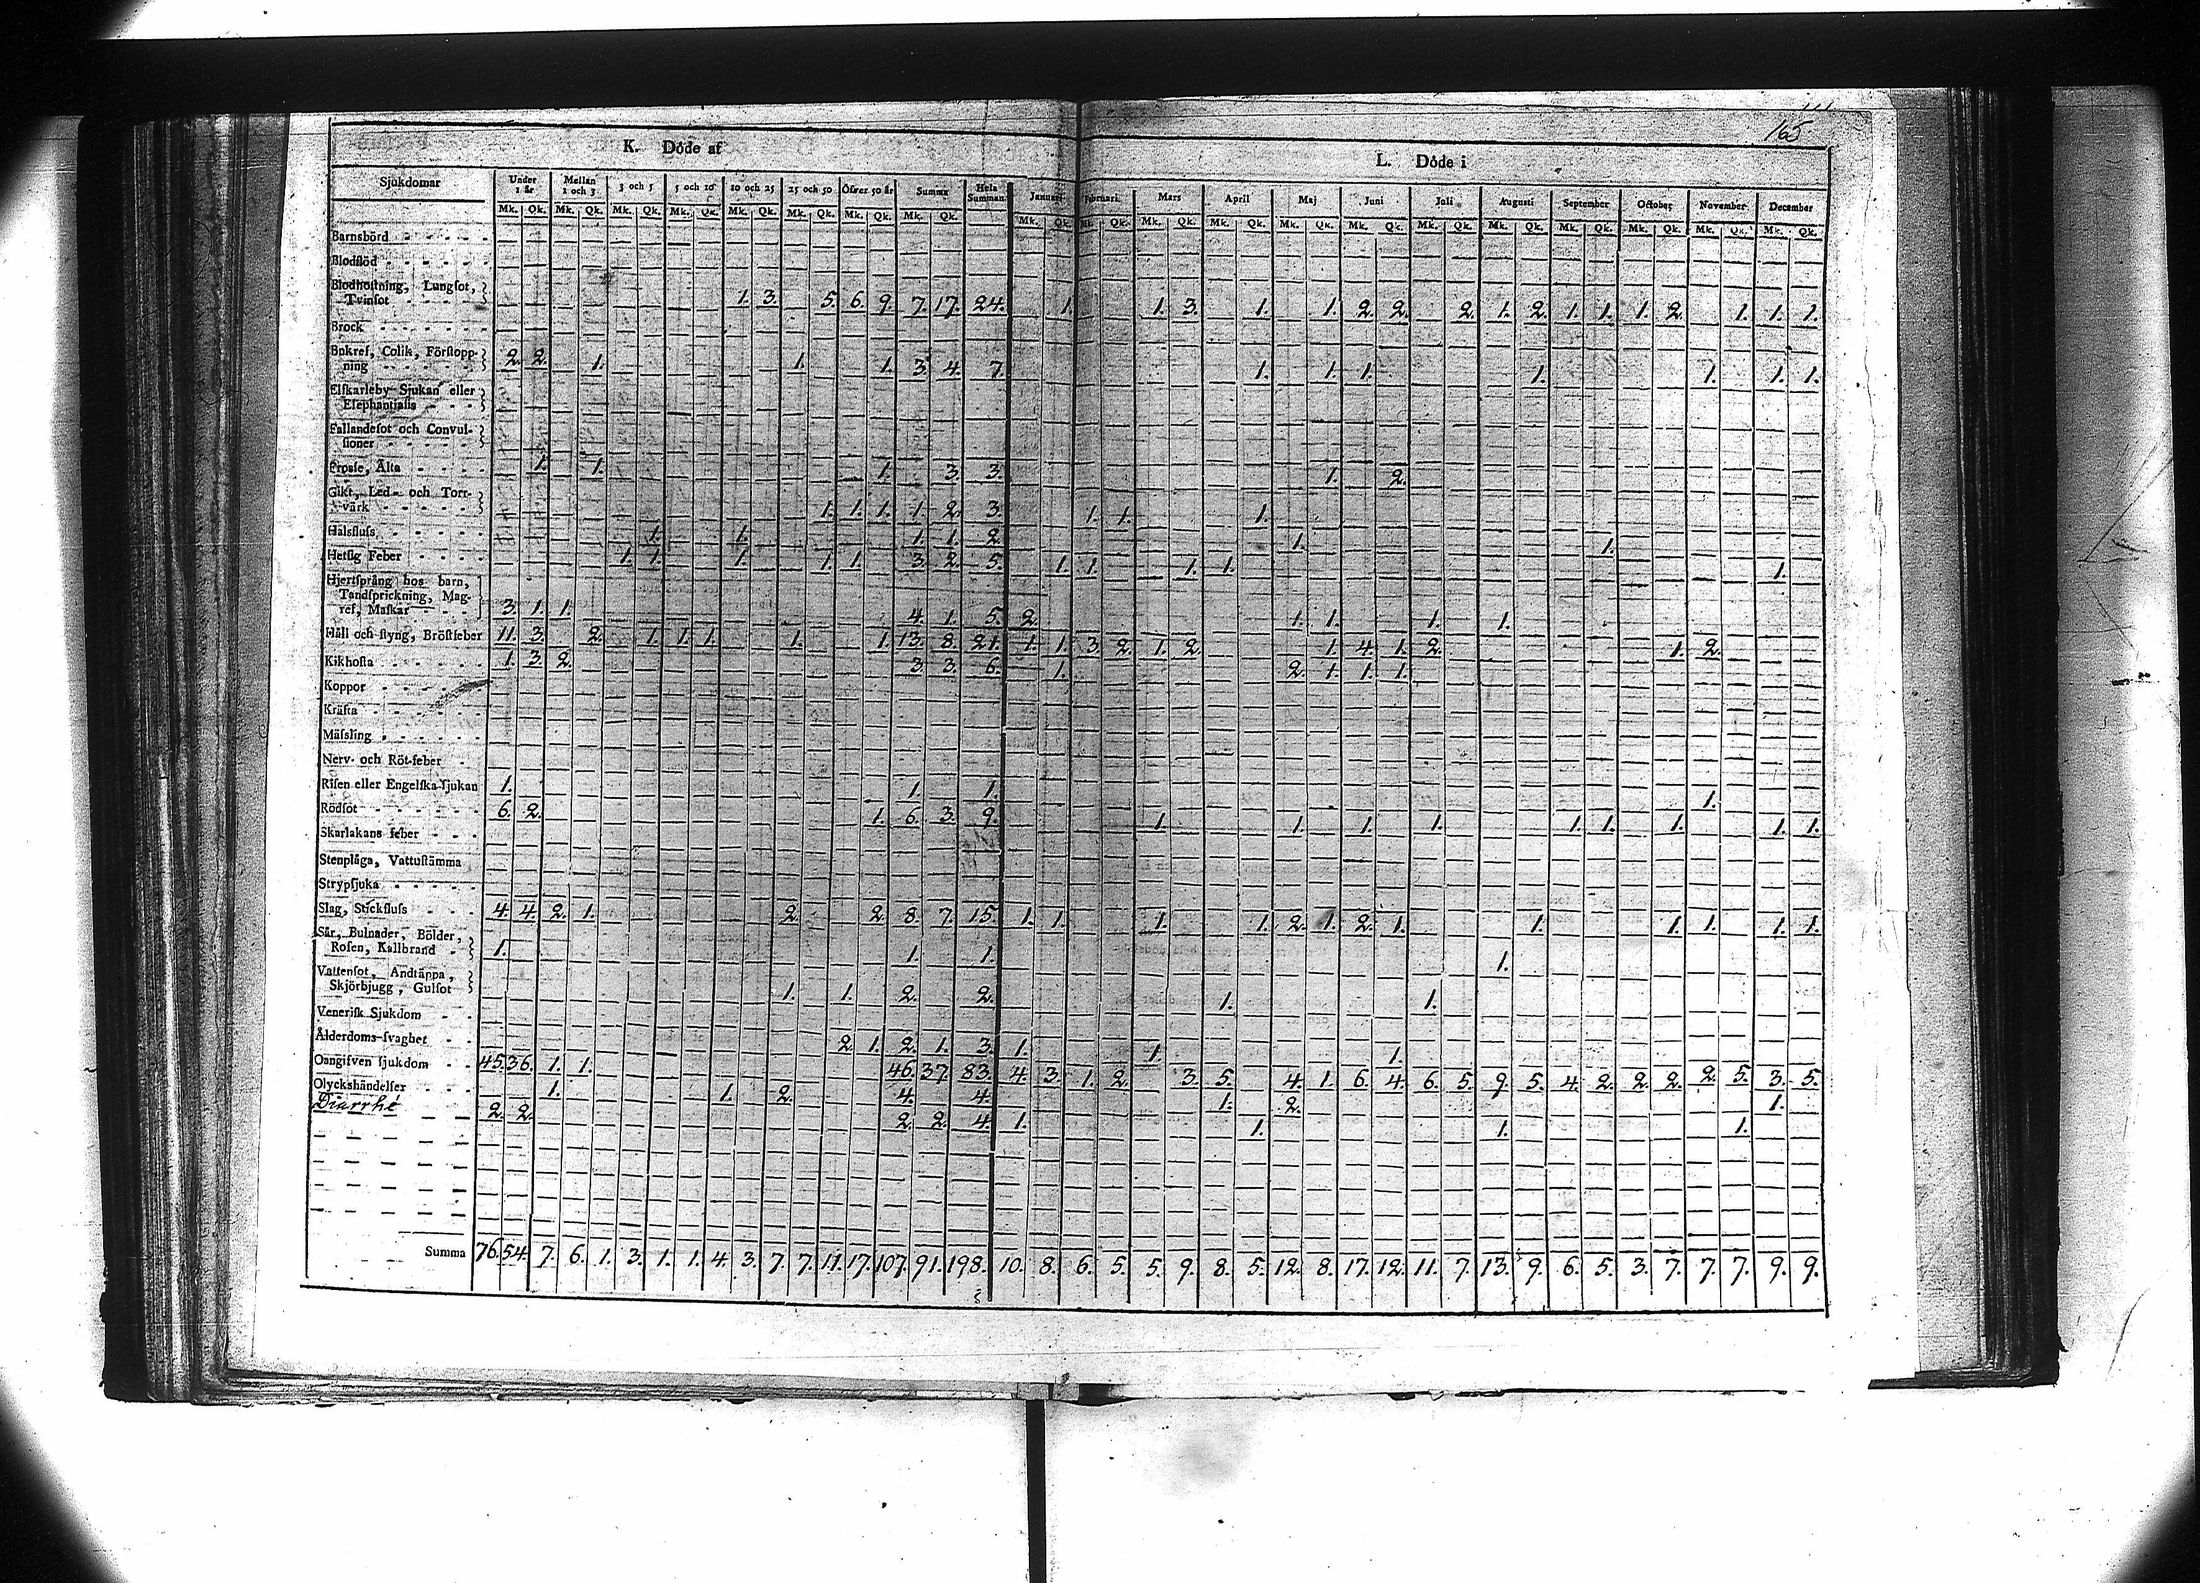 165
K. Döde af
L. Döde i
Sjukdomar Under 1 år Mellan 1 och 3 3 och 5 5 och 10 10 och 25 25 och 50 Öfver 50 år Summa Hela Summan Januari Februari Mars April Maj Juni Juli Augusti September October November December
Mk. Qk. Mk. Qk. Mk. Qk. Mk. Qk. Mk. Qk. Mk. Qk. Mk. Qk. Mk. Qk. Mk. Qk. Mk. Qk. Mk. Qk. Mk. Qk. Mk. Qk. Mk. Qk. Mk. Qk. Mk. Qk. Mk. Qk. Mk. Qk. Mk. Qk. Mk. Qk.
Barnsbörd
Blodflöd
Blodhoſtning, Lungſot,
Tvinſot 1. 3. 5. 6. 9. 7. 17. 24. 1. 1. 3. 1. 1. 2. 2. 2. 1. 2. 1. 1. 1. 2. 1. 1. 1.
Brock
Bukref, Colik, Förſtopp-
ning 2. 2. 1. 1. 1. 3. 4. 7. 1. 1. 1. 1. 1. 1. 1.
Elſkarleby Sjukan eller
Elephantiaſis
Fallandeſot och Convul-
ſioner
Froſſe, Älta 1. 1. 1. 3. 3. 1. 2.
Gikt, Led- och Torr-
värk 1. 1. 1. 1. 2. 3. 1. 1. 1.
Halsfluſs 1. 1. 1. 1. 2. 1. 1.
Hetſig Feber 1. 1. 1. 1. 1. 3. 2. 5. 1. 1. 1. 1. 1.
Hjertſprång hos barn,
Tandſprickning, Mag-
ref, Maſkar 3. 1. 1. 4. 1. 5. 2. 1. 1. 1. 1.
Håll och ſtyng, Bröſtfeber 11. 3. 2. 1. 1. 1. 1. 1. 13. 8. 21. 1. 1. 3. 2. 1. 2. 1. 4. 1. 2. 1. 2.
Kikhoſta 1. 3. 2. 3. 3. 6. 1. 2. 1. 1. 1.
Koppor
Kräfta
Mäſsling
Nerv- och Röt-feber
Riſen eller Engelſka-ſjukan 1. 1. 1. 1.
Rödſot 6. 2. 1. 6. 3. 9. 1. 1. 1. 1. 1. 1. 1. 1. 1.
Skarlakans feber
Stenplåga, Vattuſtämma
Strypſjuka
Slag, Stickfluſs 4. 4. 2. 1. 2. 2. 8. 7. 15. 1. 1. 1. 1. 2. 1. 2. 1. 1. 1. 1. 1. 1.
Sår, Bulnader, Bölder,
Roſen, Kallbrand 1. 1. 1. 1.
Vattenſot, Andtäppa,
Skjörbjugg, Gulſot 1. 1. 2. 2. 1. 1.
Veneriſk Sjukdom
Ålderdoms-ſvaghet 2. 1. 2. 1. 3. 1. 1. 1.
Oangifven ſjukdom 45. 36. 1. 1. 46. 37. 83. 4. 3. 1. 2. 3. 5. 4. 1. 6. 4. 6. 5. 9. 5. 4. 2. 2. 2. 2. 5. 3. 5.
Olyckshändelſer 1. 1. 2. 4. 4. 1. 2. 1.
Diarrhé 2. 2. 2. 2. 4. 1. 1. 1. 1.
Summa 76. 54. 7. 6. 1. 3. 1. 1. 4. 3. 7. 7. 11. 17. 107. 91. 198. 10. 8. 6. 5. 5. 9. 8. 5. 12. 8. 17. 12. 11. 7. 13. 9. 6. 5. 3. 7. 7. 7. 9. 9.